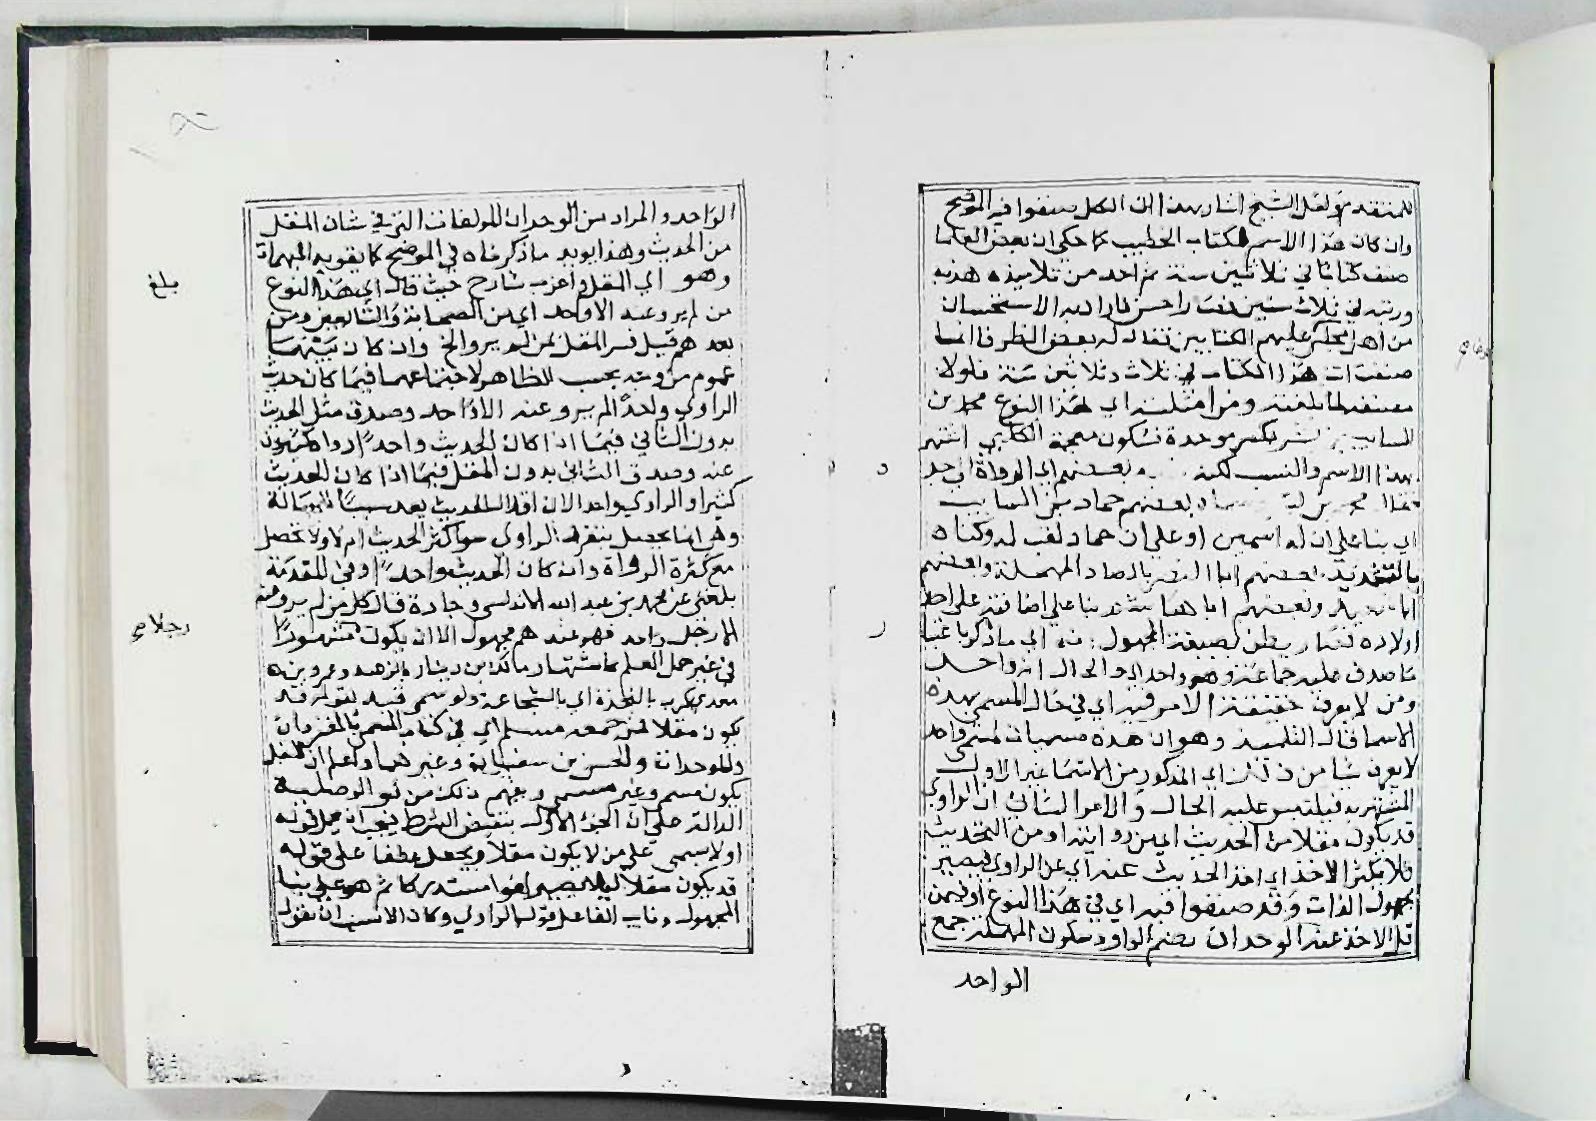 للمتقدم ولعل الشيخ اشار بهذا الى ان الكل صنفوا فيه الموضح
وان كان هذا الاسم لكتاب الخطيب كما حكى ان بعض العلما
صنف كتابا في ثلاثين سنة ثم احد من تلاميذه هذبه
ورتبه في ثلاث سنين فصار احسن فاراد به الاستحسان
من اهل مجلس عليهم الكتابين فقال له بعض الظرفا انما
صنفت هذا الكتاب في ثلاث وثلاثين سنة فلولا
مصنفه لما بلغته ومن امثلته اي هذا النوع محمد بن
السايب بن بشر بكسر موحدة فسكون معجمة الكلبي اشتهر
بهذا الاسم والنسب لكنه نسبه بعضهم اي الرواة الى جد
فقال محمد بن بشر وسماه بعضهم حماد بن السايب
اي بنا على ان له اسمين او على ان حماد لقب له وكناه
بالتشديد بعضهم ابا النضر بالضاد المعجمة وبعضهم
ابا سعيد وبعضهم ابا هشام بنا على اضافته على احد
اولاده فصار يظن بصيغة المجهول انه اي ما ذكر باعتبار
ما صدق عليه جماعة وهو واحد اي والحال انه واحد
ومن لا يعرف حقيقة الامر فيه اي في حال المسمى بهذه
الاسما قال التلميذ وهو ان هذه مسميات لمسمى واحد
لا يعرف شيا من ذلك اي المذكور من الاسما غير الاول
المشتهر به فيلتبس عليه الحال والامر الثاني ان الراوي
قد يكون مقلا من الحديث اي من روايته او من التحديث
فلا يكثر الاخذ اي اخذ الحديث عنه اي عن الراوي فيصير
مجهول الذات وقد صنفوا فيه اي في هذا النوع او فيمن
قل الاخذ عنه الوحدان بضم الواو وسكون المهملة جمع
الواحد
الواحد والمراد من الوحدان المؤلفات التي في شان المقل
من الحديث وهذا يويد ما ذكرناه في الموضح كما يقويه المبهمات
وهو اي المقل واغرب شارح حيث قال اي هذا النوع
من لم يرو عنه الا واحد اي من الصحابة والتابعين ومن
بعدهم قيل فسر المقل بمن لم يرو الخ وان كان بينهما
عموم من وجه بحسب الظاهر لاجتماعهما فيما كان حديث
الراوي واحدا لم يرو عنه الا واحد وصدق مقل الحديث
بدون الثاني فيما اذا كان الحديث واحدا رواه كثيرون
عنه وصدق الثاني بدون المقل فيما اذا كان الحديث
كثيرا والراوي واحدا لان اقلال الحديث يعد سببا للجهالة
وهي انما يحصل بتفرد الراوي سوا كثر الحديث ام لا ولا تحصل
مع كثرة الرواة وان كان الحديث واحدا وفي المقدمة
بلغني عن محمد بن عبد الله الاندلسي وجادة قال كل من لم يرو عنه
الا رجل واحد فهو عندهم مجهول الا ان يكون مشهورا
في غير حمل العلم كاشتهار مالك بن دينار بالزهد وعمرو بن
معدي كرب بالنجدة اي بالشجاعة ولو سمي فيه لقوله قد
يكون مقلا فمن جمعه مسلم اي في كتابه المسمى بالمنفردات
والوحدان والحسن بن سفيان وغيرهما واعلم ان المقل
يكون مسمى وغير مسمى ويفهم ذلك من لو الوصلية
الدالة على ان الجزء الاول بنقيض الشرط فيجب ان يحمل قوله
او لا يسمى على من لا يكون مقلا ويجعل عطفا على قوله
قد يكون مقلا لئلا يصير لغوا مستدركا ثم هو على بنا
المجهول ونايب الفاعل قوله الراوي وكان الانسب ان يقول
بلغ
رجلا صح